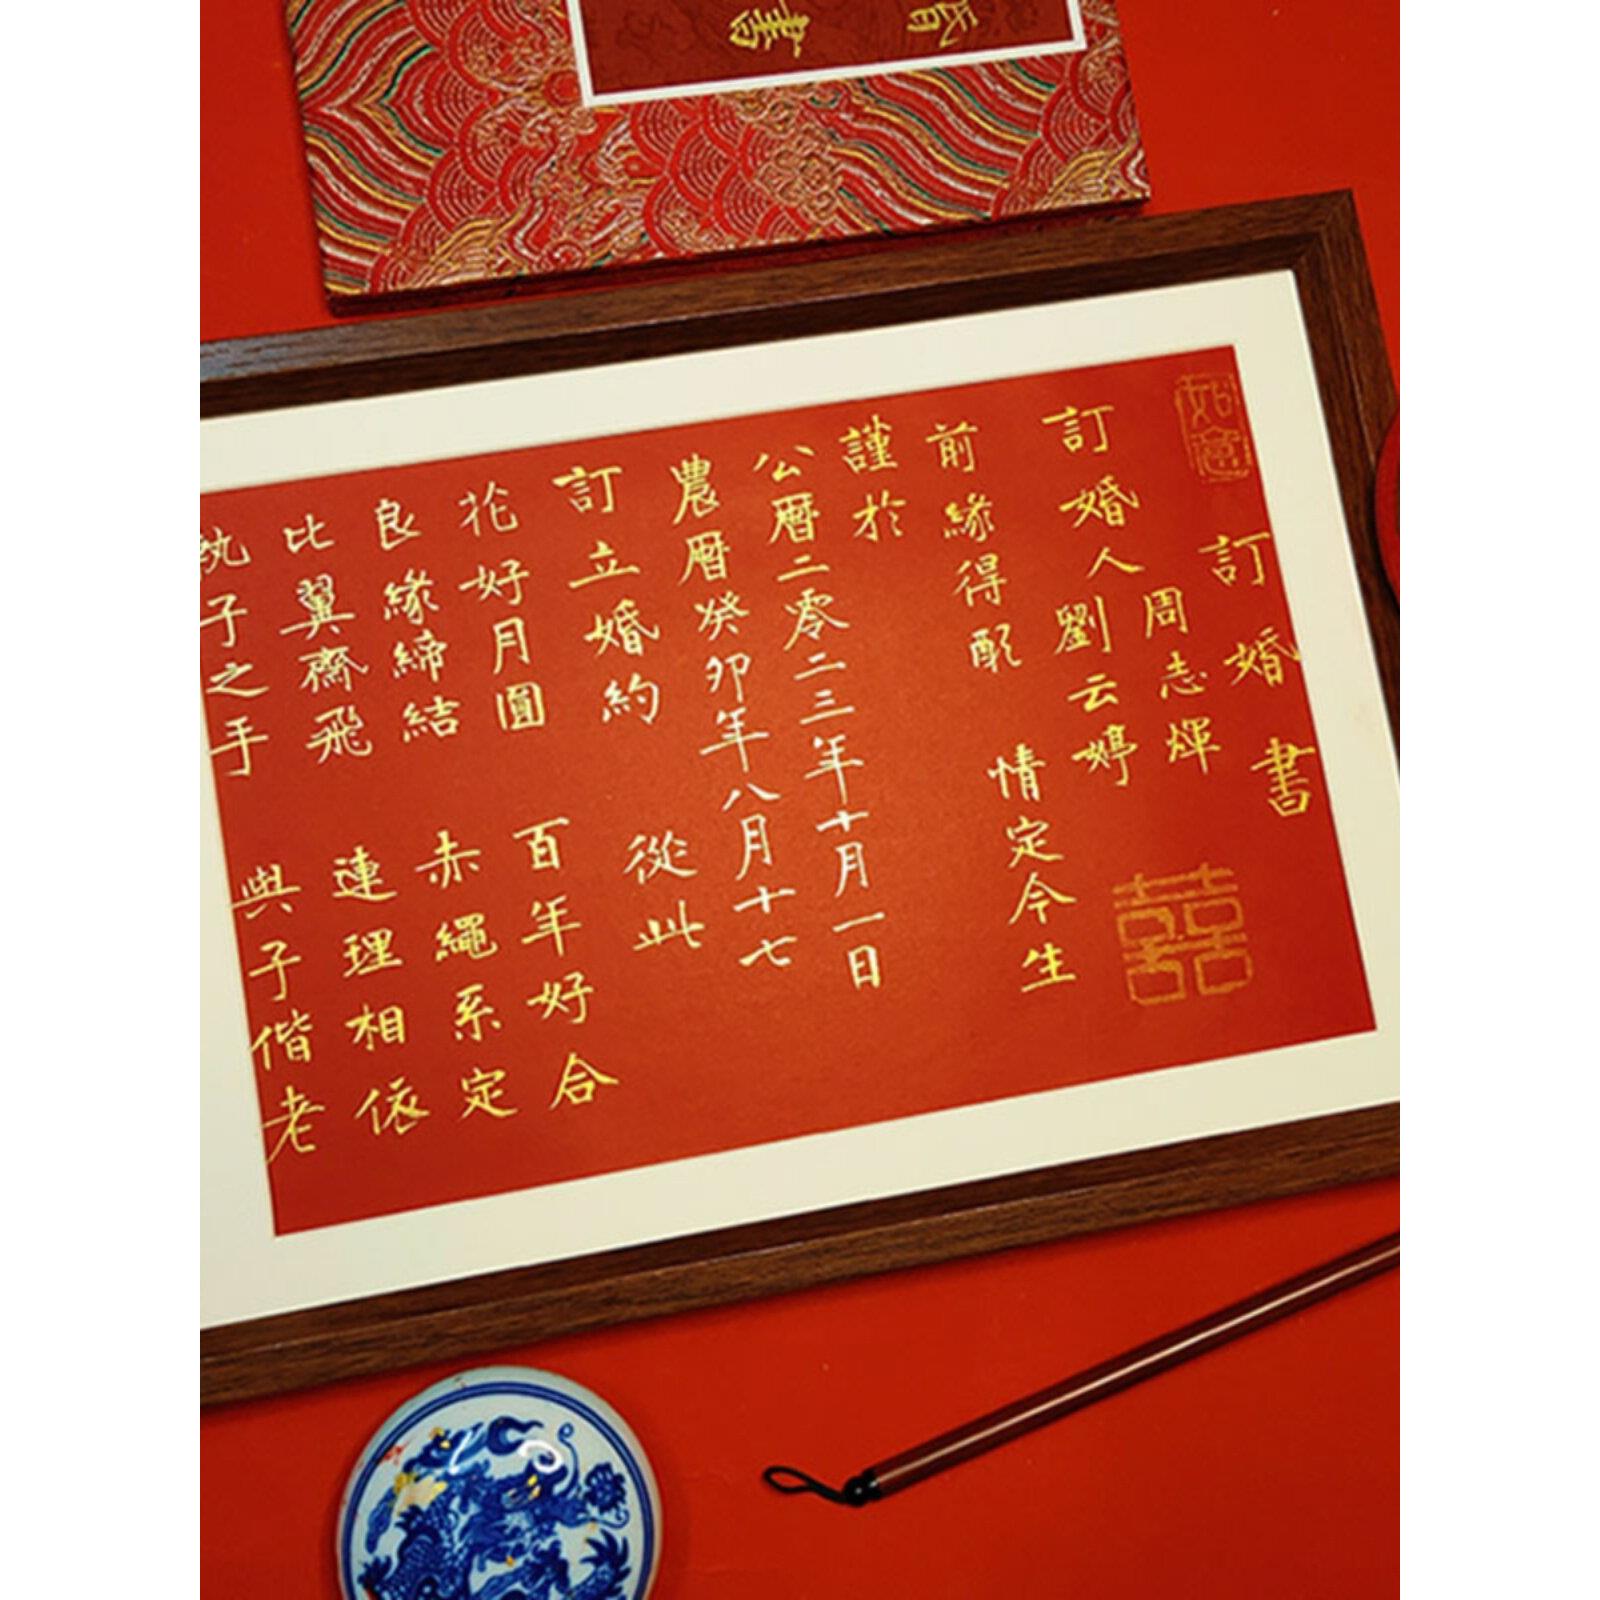 婚書
如意
訂婚書
周志煇
訂婚人劉云婷
囍
前緣得配 情定今生
謹於
公曆二零二三年十月一日
農曆癸卯年八月十七
訂立婚約 從此
花好月圓 百年好合
良緣締結 赤繩系定
比翼齋飛 連理相依
執子之手 與子偕老